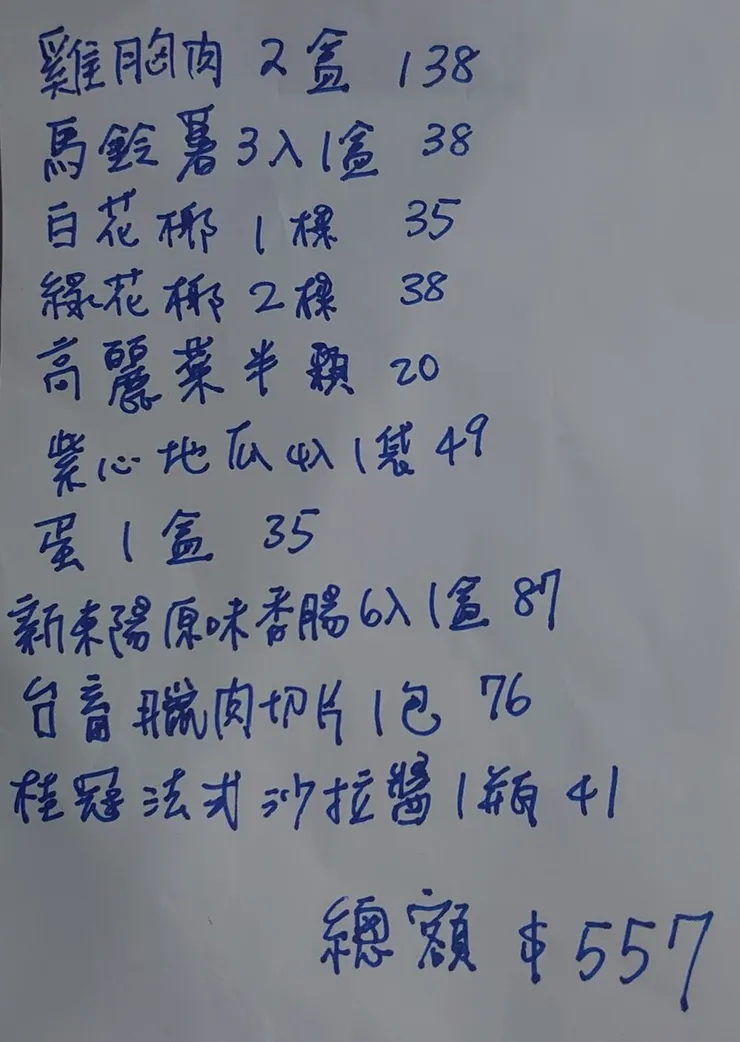 雞胸肉 2盒 138
馬鈴薯3入1盒 38
白花椰 1棵 35
綠花椰2棵 38
高麗菜半顆 20
紫心地瓜4入1袋 49
蛋1盒 35
新東陽原味香腸6入1盒 87
台畜臘肉切片1包 76
桂冠法式沙拉醬1瓶 41
總額 $557